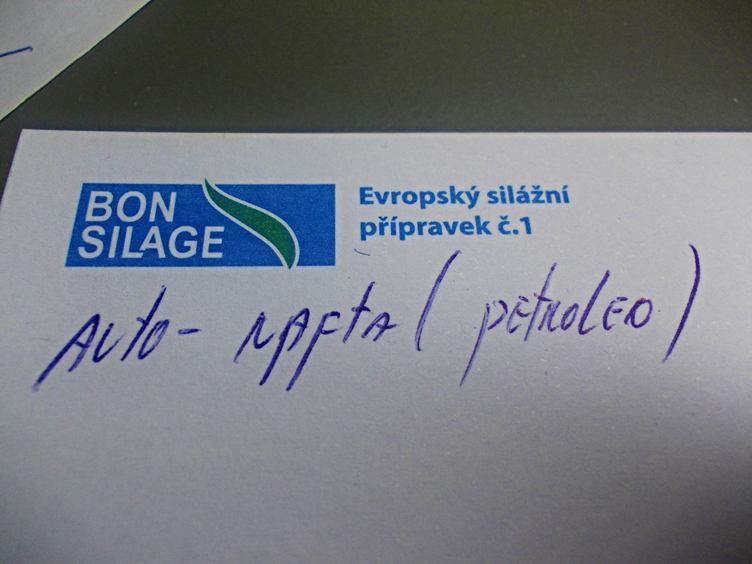 BON
SILAGE
Evropský silážní
přípravek č.1
AUTO- NAFTA ( PETROLEO )